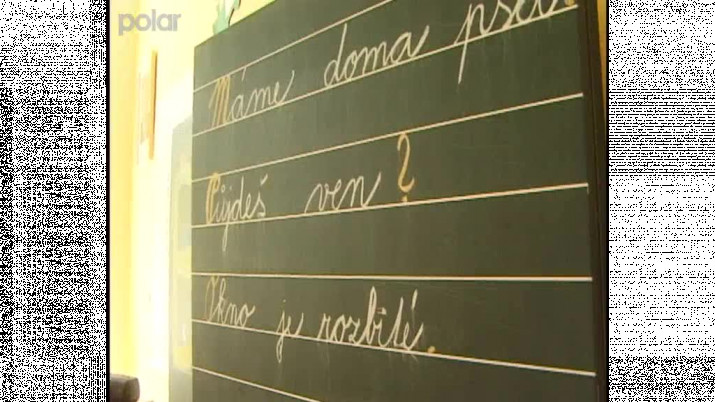 polar
Máme doma psa.
Půjdeš ven?
Okno je rozbité.